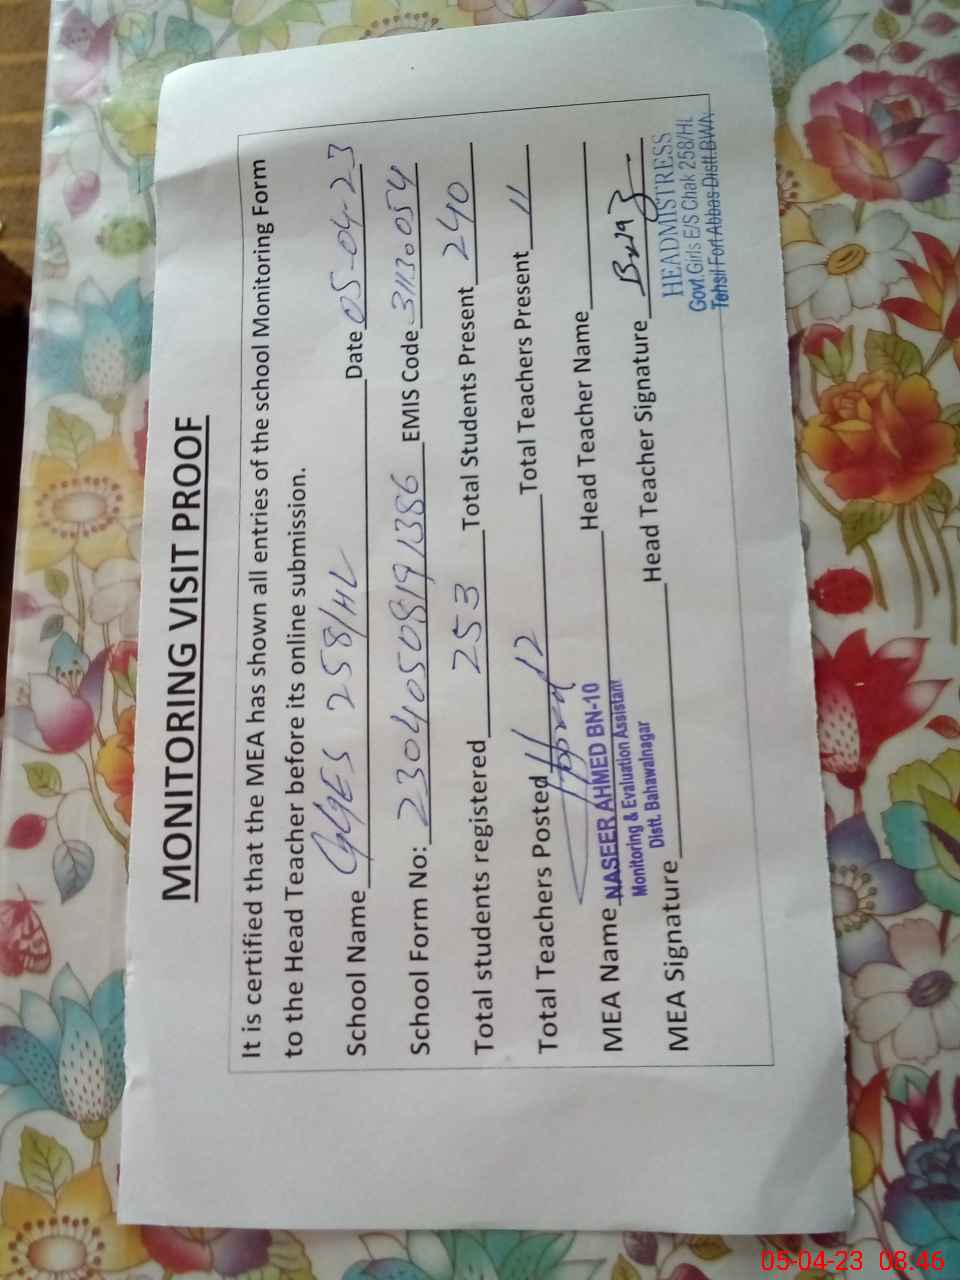 MONITORING VISIT PROOF
It is certified that the MEA has shown all entries of the school Monitoring Form
to the Head Teacher before its online submission.
School Name GGES 258/HL Date 05-04-23
School Form No: 23040508191386 EMIS Code 31130054
Total students registered 253 Total Students Present 240
Total Teachers Posted 12 Total Teachers Present 11
MEA Name NASEER AHMED BN-10 Head Teacher Name
Monitoring & Evaluation Assistant
Distt. Bahawalnagar
MEA Signature Head Teacher Signature
HEADMISTRESS
Govt.Girls E/S Chak 258/HL
Tehsil Fort Abbas Distt.BWN
05-04-23 08:46